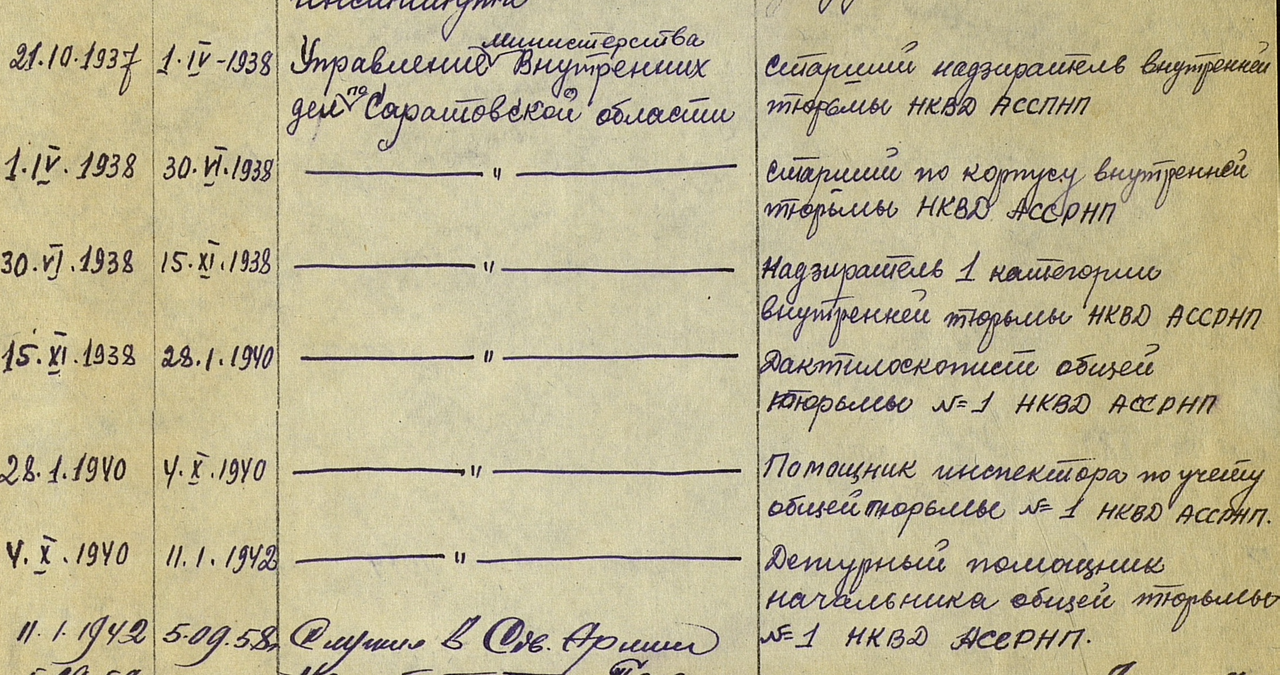 института
министерства
21.10.1937 1·IV-1938 Управление Внутренних старший надзиратель внутренней
дел по Саратовской области тюрьмы НКВД АССПНП
1.IV.1938 30.VI.1938 — " — старший по корпусу внутренней
тюрьмы НКВД АССРНП
30.VI.1938 15.XI.1938 — " — Надзиратель 1 категории
внутренней тюрьмы НКВД АССРНП
15.XI.1938 28.1.1940 — " — Дактилоскопист общей
тюрьмы №1 НКВД АССРНП
28.1.1940 4.X.1940 — " — Помощник инспектора по учету
общей тюрьмы №1 НКВД АССРНП.
4.X.1940 11.1.1942 — " — Дежурный помощник
начальника общей тюрьмы
11.1.1942 5.09.58 Служил в Сов. Армии №1 НКВД АССРНП.